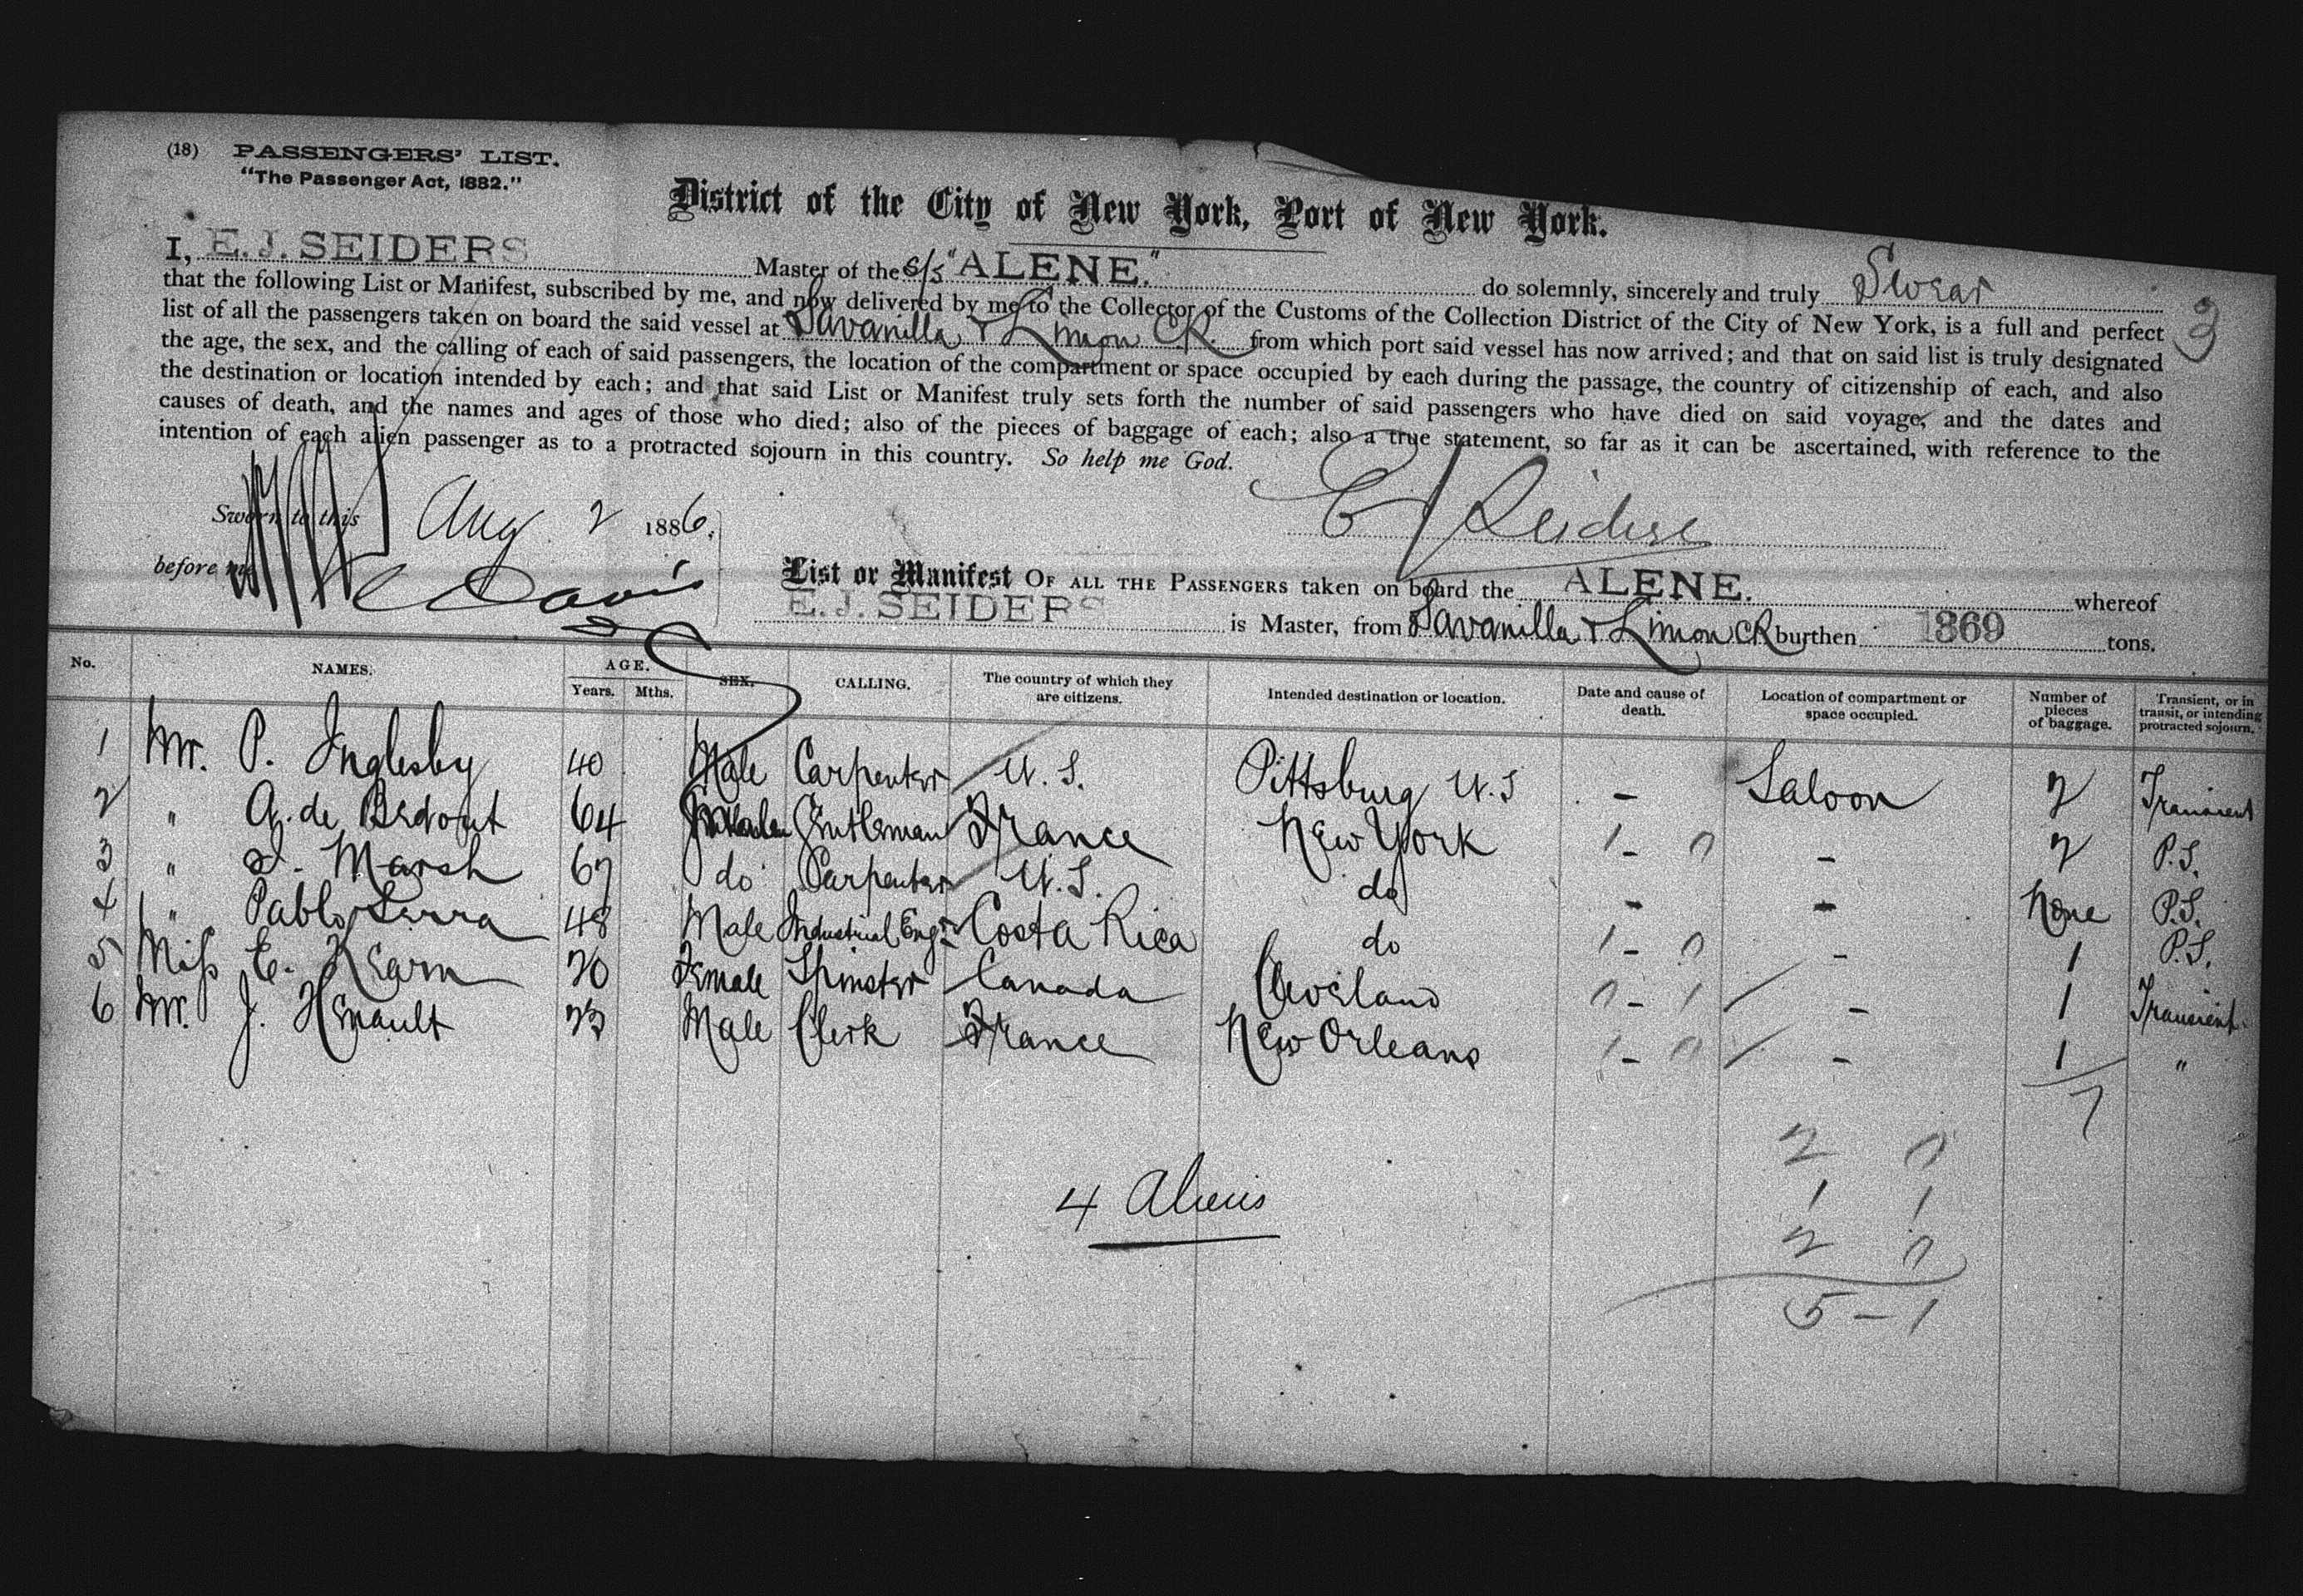 (18) PASSENGERS' LIST.
"The Passenger Act, 1882."
District of the City of New York, Port of New York.
I, E. J. SEIDERS Master of the S/S "ALENE." do solemnly, sincerely and truly Swear
that the following List or Manifest, subscribed by me, and now delivered by me to the Collector of the Customs of the Collection District of the City of New York, is a full and perfect
list of all the passengers taken on board the said vessel at Savanilla & Limon C.R. from which port said vessel has now arrived; and that on said list is truly designated
the age, the sex, and the calling of each of said passengers, the location of the compartment or space occupied by each during the passage, the country of citizenship of each, and also
the destination or location intended by each; and that said List or Manifest truly sets forth the number of said passengers who have died on said voyage, and the dates and
causes of death, and the names and ages of those who died; also of the pieces of baggage of each; also a true statement, so far as it can be ascertained, with reference to the
intention of each alien passenger as to a protracted sojourn in this country. So help me God.
3
Sworn to this Aug 2 1886.
E J Seiders
before me Davis
List or Manifest OF ALL THE PASSENGERS taken on board the ALENE. whereof
E. J. SEIDERS is Master, from Savanilla & Limon CR burthen 1869 tons.
No. NAMES. AGE. Years. Mths. SEX. CALLING. The country of which they are citizens. Intended destination or location. Date and cause of death. Location of compartment or space occupied. Number of pieces of baggage. Transient, or in transit, or intending protracted sojourn.
1 Mr. P. Inglesby 40 Male Carpenter U.S. Pittsburg U.S - Saloon 2 Transient
2 " A. de Bedout 64 Gentleman France New York 1 - 0 - 2 P.S.
3 " Marsh 67 do Carpenter U.S. do - - None P.S.
4 " Pablo Serra 48 Male Industrial Engr Costa Rica do 1 - 0 - 1 P.S.
5 Miss E. Kearn 20 Female Spinster Canada Cleveland 0 - 1 - 1 Transient
6 Mr. J. Henault 23 Male Clerk France New Orleans 1 - 0 - 1 "
7
2 0
4 Aliens
1 1
2 0
5 - 1